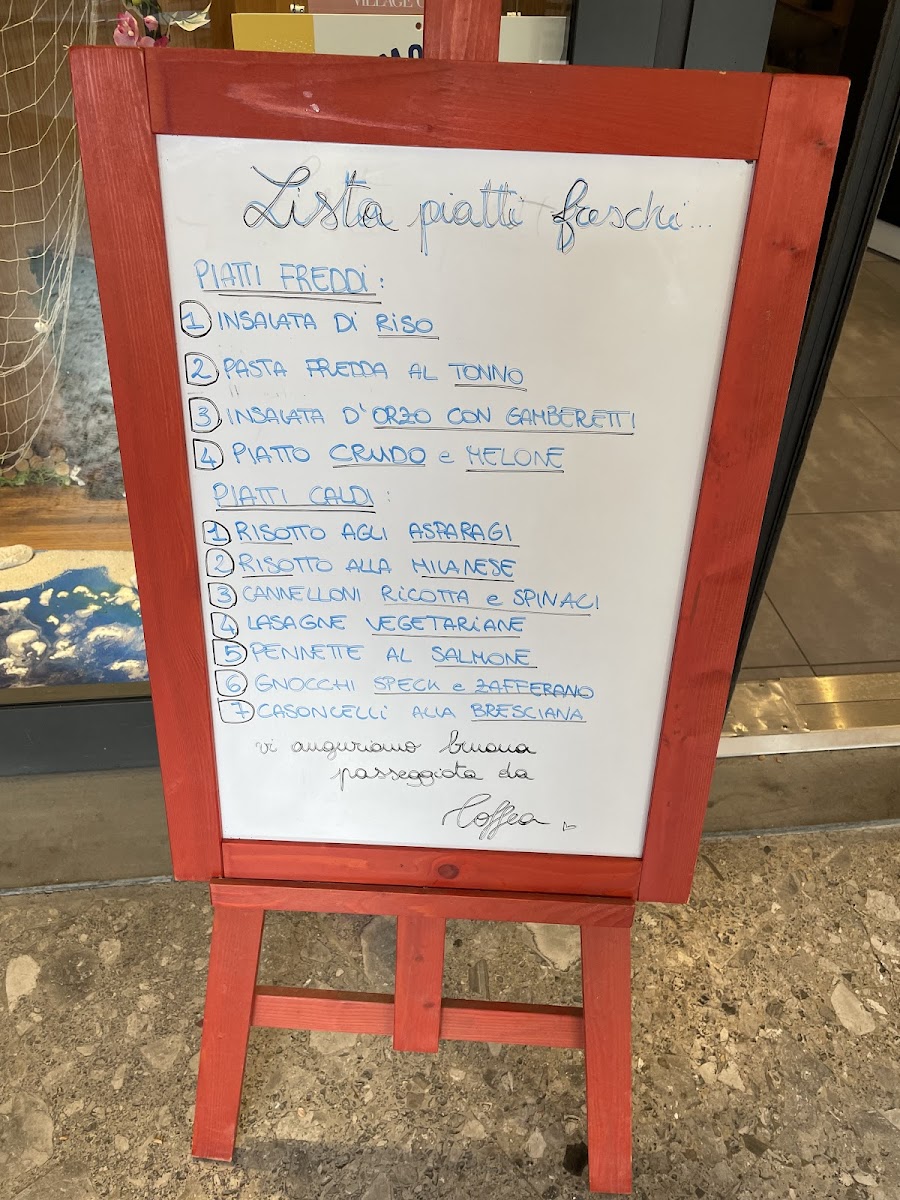 VILLAGE
Lista piatti freschi...
PIATTI FREDDI:
1 INSALATA DI RISO
2 PASTA FREDDA AL TONNO
3 INSALATA D'ORZO CON GAMBERETTI
4 PIATTO CRUDO e MELONE
PIATTI CALDI:
1 RISOTTO AGLI ASPARAGI
2 RISOTTO ALLA MILANESE
3 CANNELLONI RICOTTA e SPINACI
4 LASAGNE VEGETARIANE
5 PENNETTE AL SALMONE
6 GNOCCHI SPECK e ZAFFERANO
7 CASONCELLI ALLA BRESCIANA
vi auguriamo buona
passeggiata da
Coffea